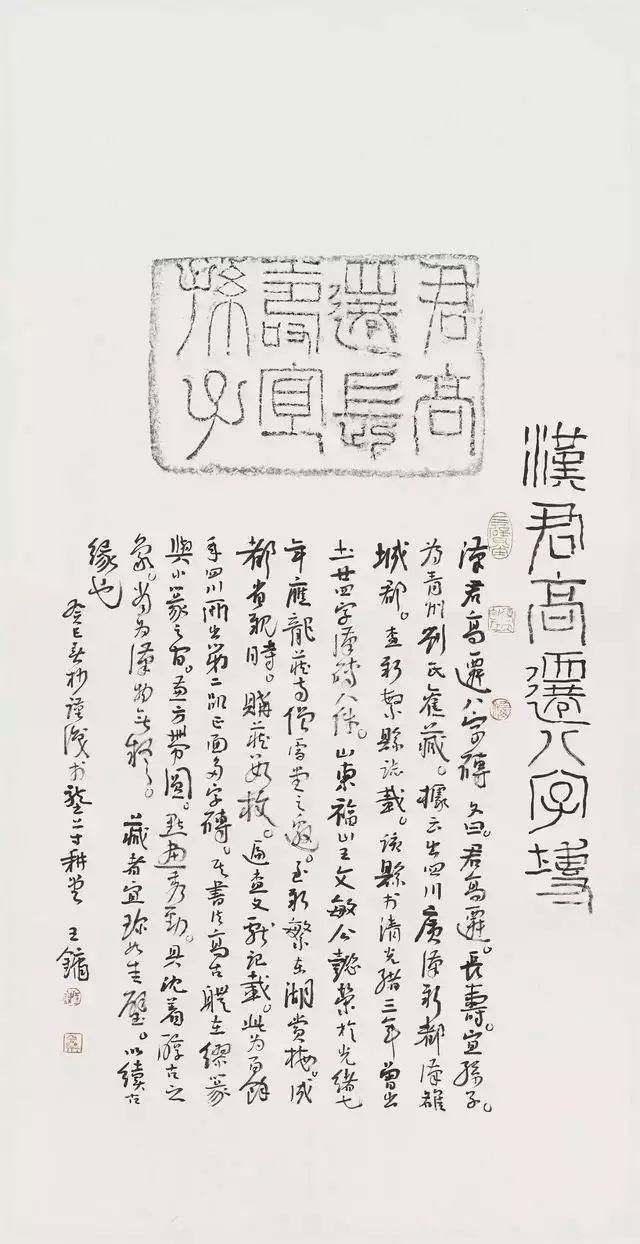 君高
遷長
壽宜
孫子
漢君高遷八字塼
漢君高遷八字磚文曰。君高遷。長壽。宜孫子。
為青州劉氏舊藏。據云出四川廣漢新都漢雒
城郡。查新繁縣誌載。該縣於清光緒三年曾出
土廿四字漢磚八件。山東福山王文敏公懿榮於光緒七
年應龍藏寺僧雪堂之邀。至新繁東湖賞梅。成
都省親時。購藏數枚。遍查文獻記載。此為百餘
年四川所出第二品正面多字磚。其書法高古體在繆篆
與小篆之間。益方帶圓。點畫秀勁。具沈着醇古之
氣。當為漢物無疑。藏者宜珍如圭璧。以續古
緣也
癸巳春杪謹識於 寸耕堂 王鏞